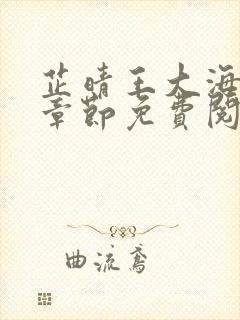 芷晴王大海
章節免費閱
曲流鳶